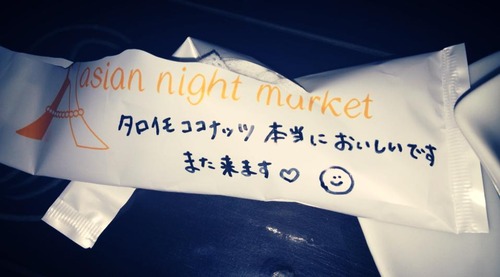 asian night market
タロイモココナッツ 本当においしいです
また来ます♡ ☺